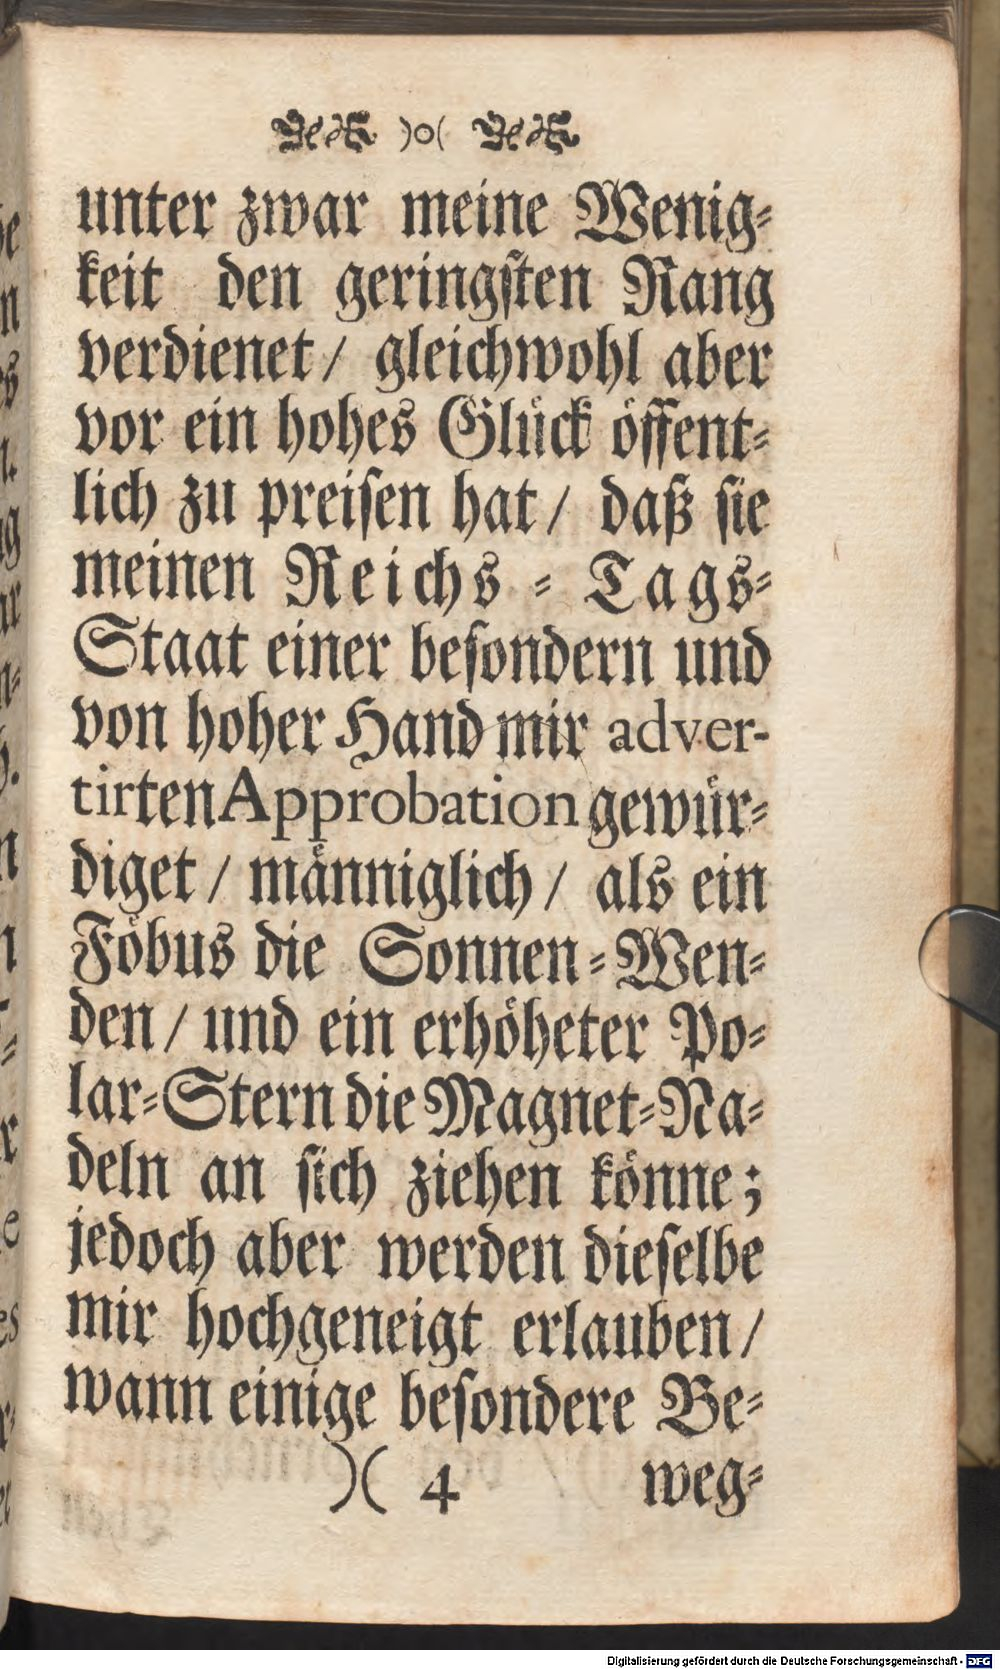 )o(
unter zwar meine Wenig-
keit den geringsten Rang
verdienet / gleichwohl aber
vor ein hohes Glück öffent-
lich zu preisen hat / daß sie
meinen Reichs - Tags-
Staat einer besondern und
von hoher Hand mir adver-
tirten Approbation gewür-
diget / männiglich / als ein
Föbus die Sonnen-Wen-
den / und ein erhöheter Po-
lar-Stern die Magnet-Na-
deln an sich ziehen könne;
jedoch aber werden dieselbe
mir hochgeneigt erlauben /
wann einige besondere Be-
)( 4 weg-
Digitalisierung gefördert durch die Deutsche Forschungsgemeinschaft - DFG